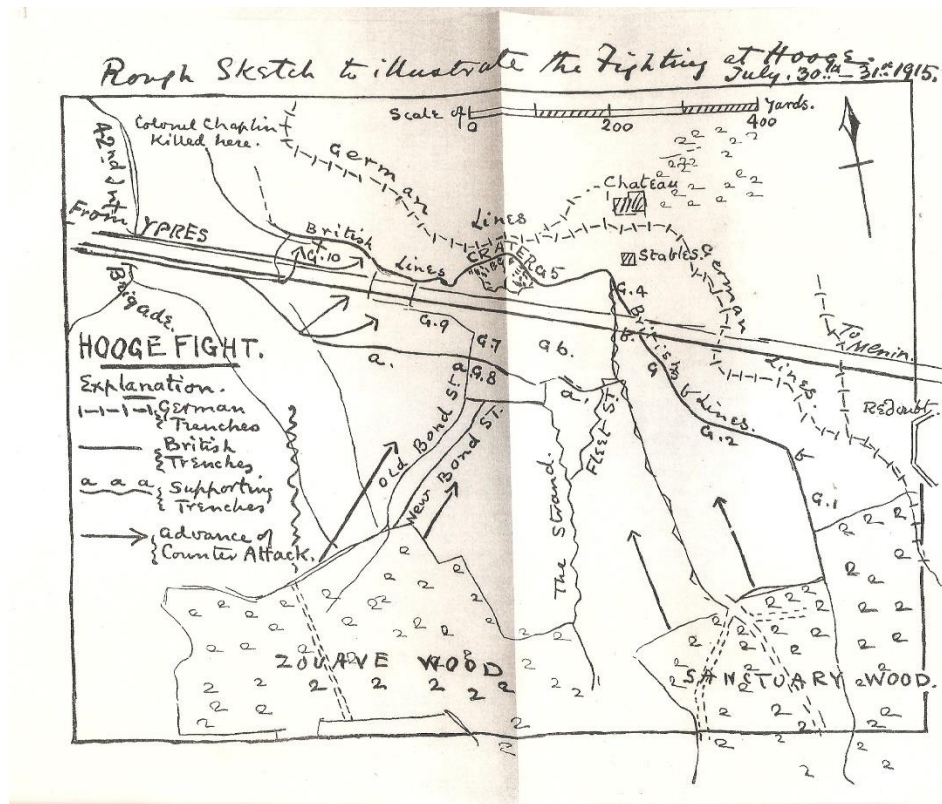 Rough Sketch to illustrate the Fighting at Hooge.
July. 30th – 31st 1915.
Scale of
0
200
400
Yards.
Colonel Chaplin
Killed here.
42nd Inf
Brigade.
From
YPRES
German
Lines
Chateau
Stables
British
Lines
CRATER
G.10
G5
G.4
German
Lines
G.9
G.7
G.8
G6.
G3
British
Lines.
G.2
G.1
To
Menin.
Redoubt.
a.
a
a.
b.
b
HOOGE FIGHT.
Explanation.
German
Trenches
British
Trenches
a a a
Supporting
Trenches
advance of
Counter Attack.
Old Bond St.
New Bond St.
The Strand.
Fleet St.
ZOUAVE WOOD
SANCTUARY WOOD.